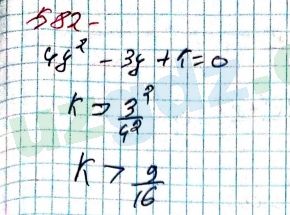 582-
4y² - 3y + K = 0
K = 3²/4²
K > 9/16